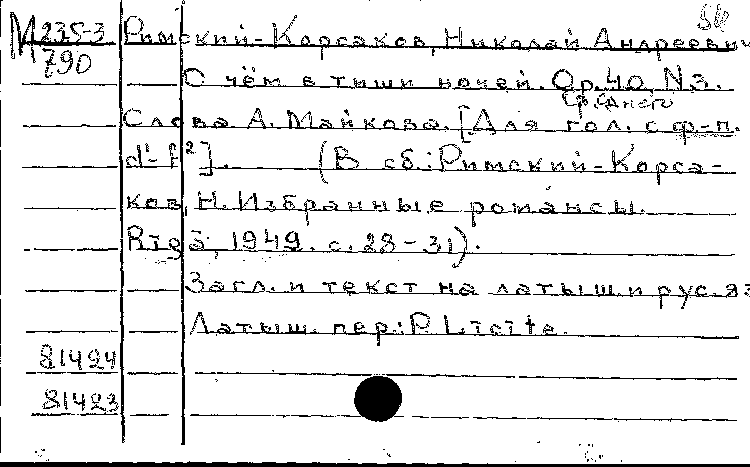 М 235-3
790
Римский-Корсаков, Николай Андреевич
О чём в тиши ночей. Op. 40, N 3.
Слова А. Майкова. [Для среднего гол. с ф-п.
d¹-f²]. (В сб.: Римский-Корса-
ков, Н. Избранные романсы.
Rīgā, 1949. с. 28-31).
Загл. и текст на латыш. и рус. яз
Латыш. пер.: P. Līcīte.
81424
81423